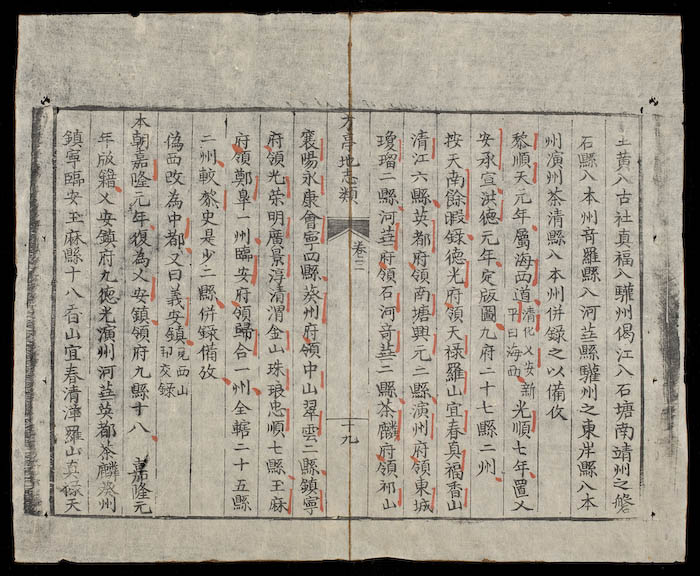 土黄入古社真福入驩州偈江入石塘南靖州之盤
石縣入本州竒羅縣入河華縣驩州之東岸縣入本
州演州茶清縣入本州併錄之以備攷
黎順天元年屬海西道清化乂安新平曰海西光順七年置乂
安承宣洪德元年定版圖九府二十七縣二州
按天南餘暇錄德光府領天祿羅山宜春真福香山
清江六縣英都府領南塘興元二縣演州府領東城
瓊瑠二縣河華府領石河竒華二縣茶麟府領祁山
方亭地志類 卷三 十九
襄陽永康會寧四縣葵州府領中山翠雲二縣鎮寧
府領光荣明廣景淳清渭金山珠琅忠順七縣玉麻
府領鄭臯一州臨安府領歸合一州全轄二十五縣
二州較黎史是少二縣併錄備攷
偽西改為中都又曰義安鎮見西山印交錄
本朝嘉隆元年復為乂安鎮領府九縣十八 嘉隆元
年啟籍乂安鎮府九德光演州河華英都茶麟葵州
鎮寧臨安玉麻縣十八香山宜春清漳羅山真祿天